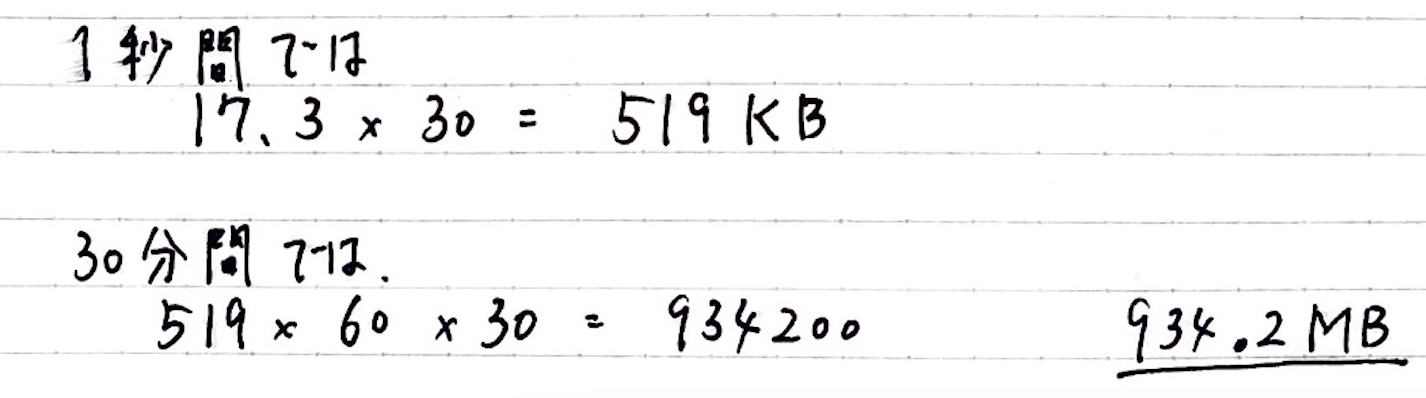 1秒間では
17.3 × 30 = 519 KB
30分間では.
519 × 60 × 30 = 934200 934.2MB